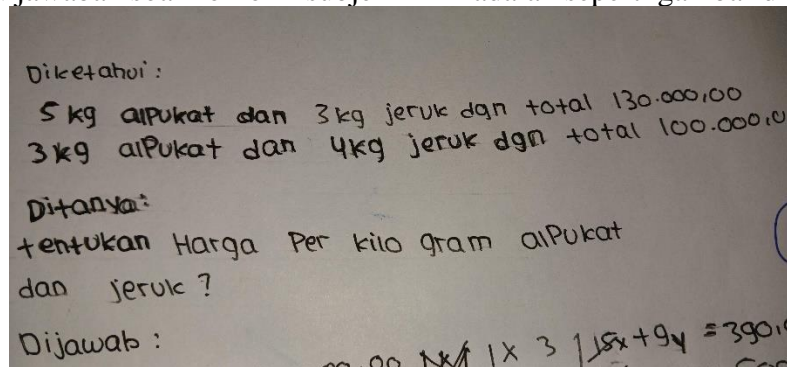 Diketahui:
5 kg alpukat dan 3kg jeruk dgn total 130.000,00
3 kg alpukat dan 4kg jeruk dgn total 100.000,0
Ditanya:
tentukan Harga Per kilo gram alpukat
dan jeruk?
Dijawab:
1x 3 15x+9y = 390,